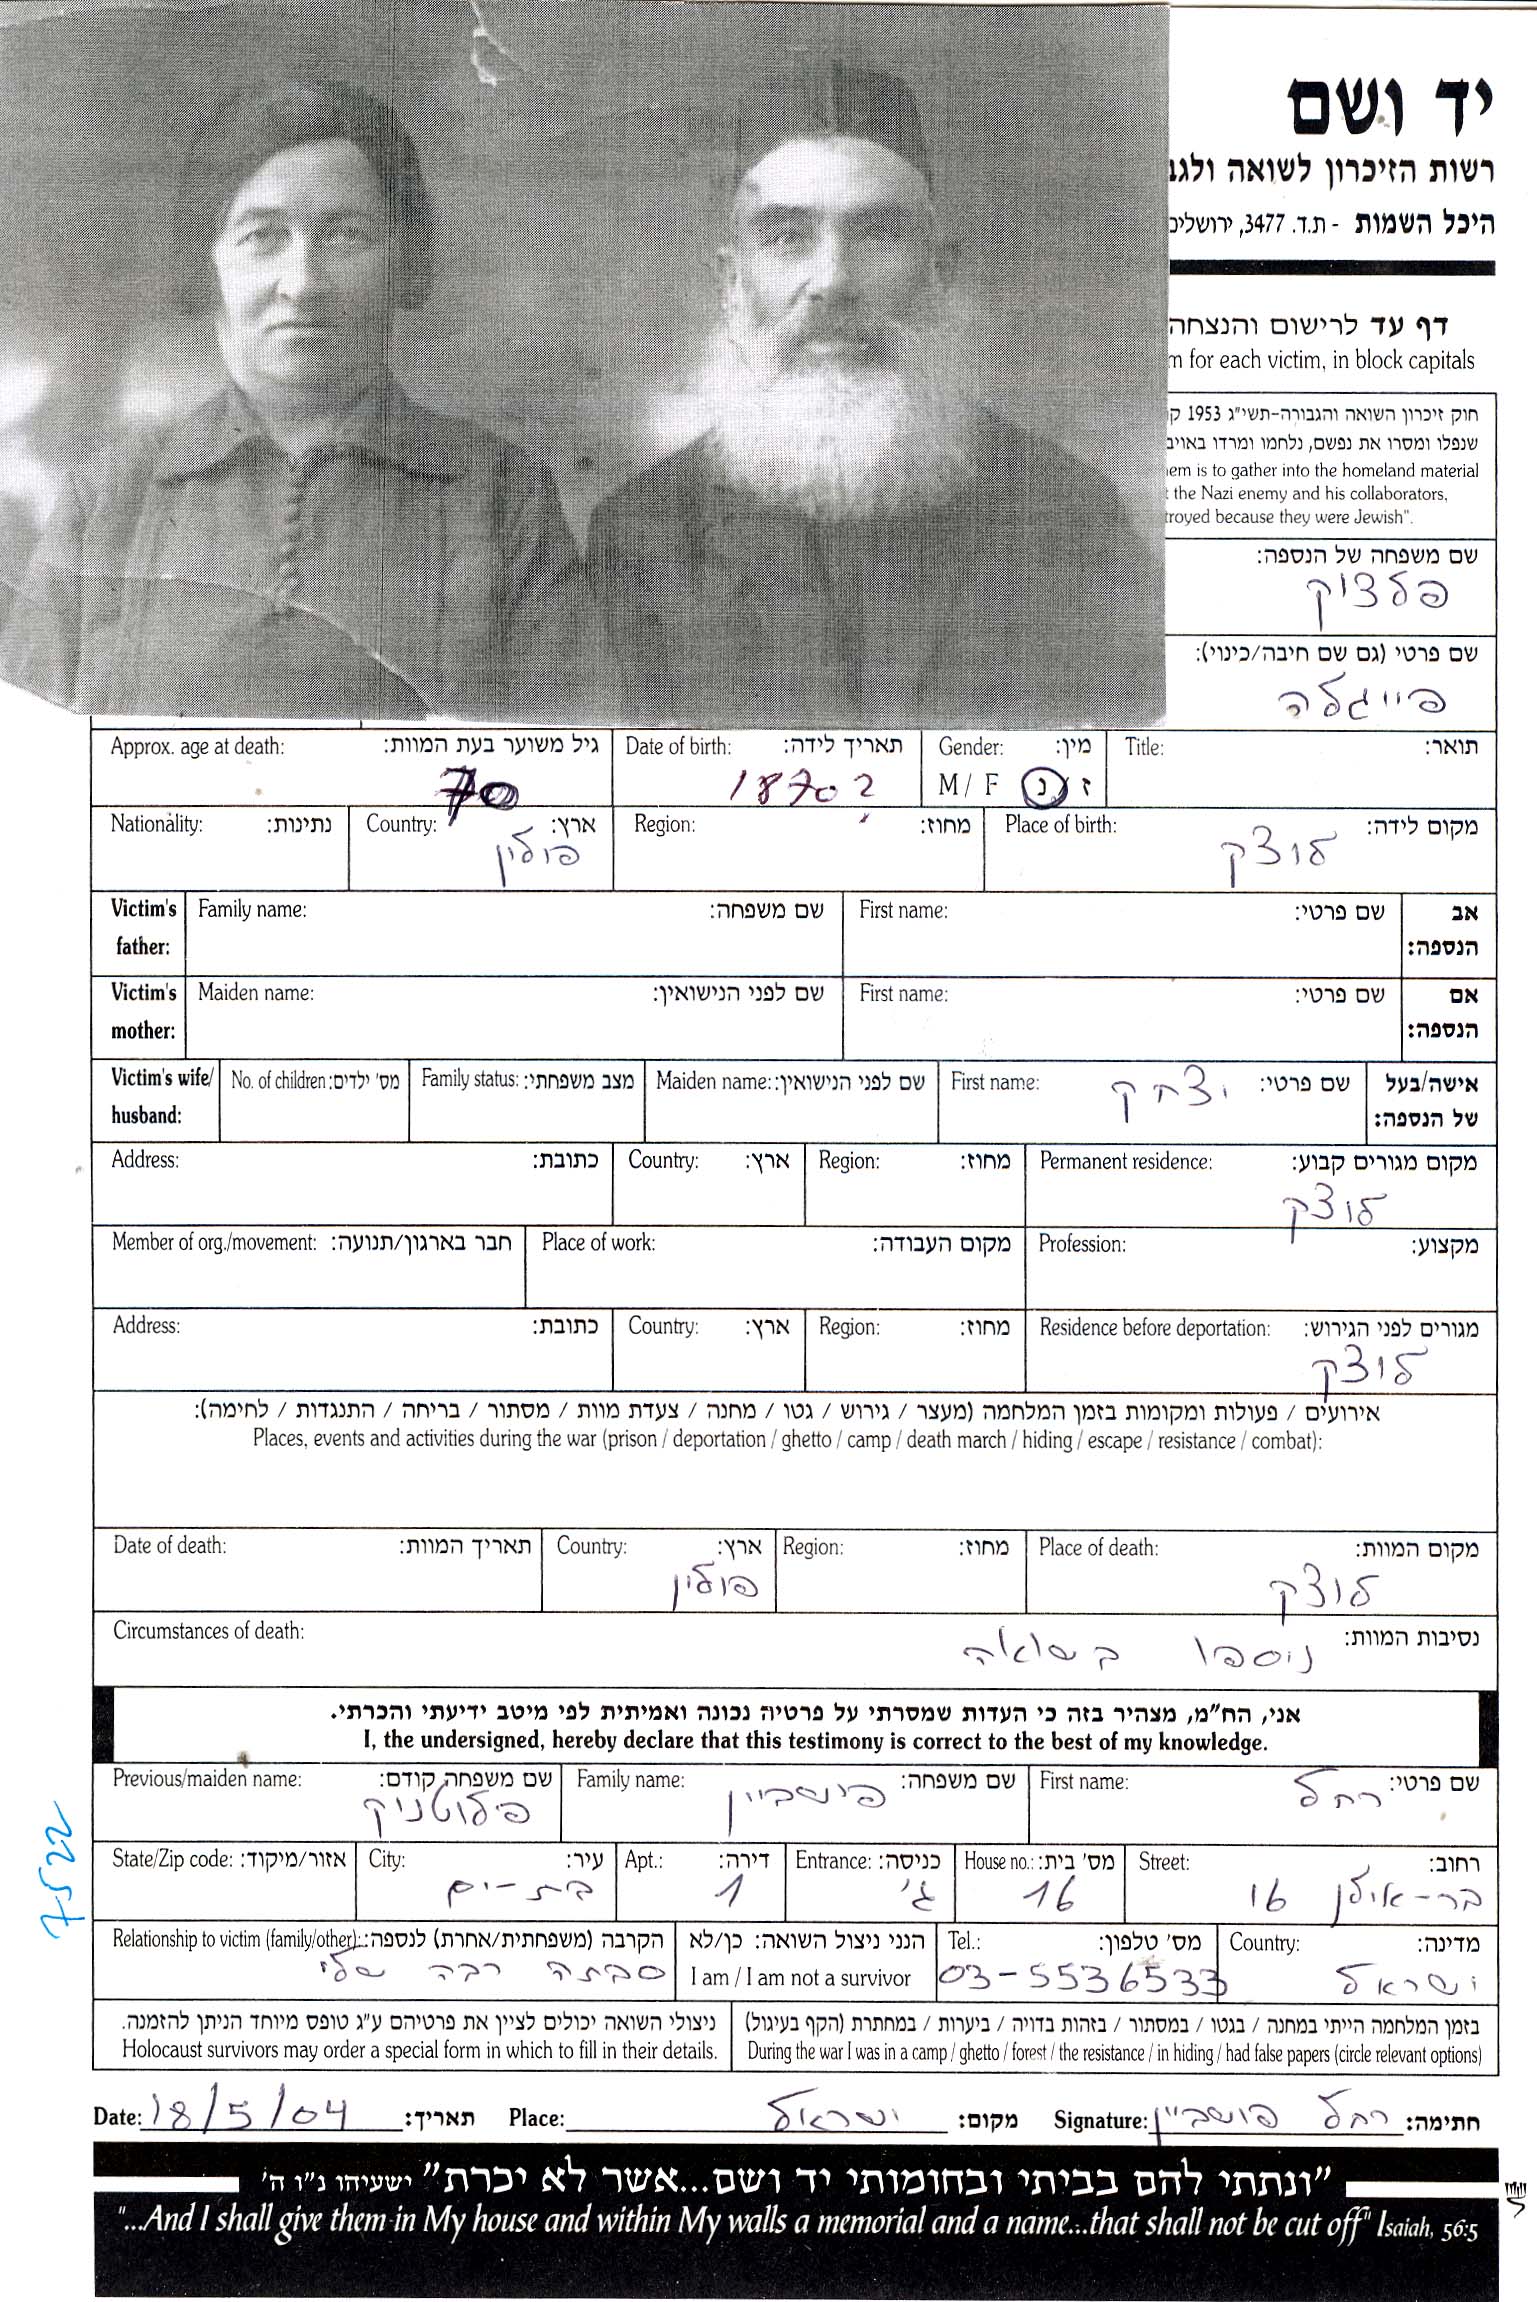 יד ושם
רשות הזיכרון לשואה ולגב
היכל השמות - ת.ד. 3477, ירושלים
דף עד לרישום והנצחה
m for each victim, in block capitals
חוק זיכרון השואה והגבורה-תשי"ג 1953 ק
שנפלו ומסרו את נפשם, נלחמו ומרדו באויב
em is to gather into the homeland material
t the Nazi enemy and his collaborators,
troyed because they were Jewish".
שם משפחה של הנספה:
פלצוק
שם פרטי (גם שם חיבה/כינוי):
פייגלה
תואר: Title:
מין: Gender: ז / נ M / F
תאריך לידה: Date of birth: 1870 ?
גיל משוער בעת המוות: Approx. age at death: 70
מקום לידה: Place of birth: לוצק
מחוז: Region:
ארץ: Country: פולין
נתינות: Nationality:
אב הנספה: שם פרטי: First name: שם משפחה: Family name: Victim's father:
אם הנספה: שם פרטי: First name: שם לפני הנישואין: Maiden name: Victim's mother:
אישה/בעל של הנספה: שם פרטי: First name: יצחק
שם לפני הנישואין: Maiden name: מצב משפחתי: Family status: מס' ילדים: No. of children: Victim's wife/ husband:
מקום מגורים קבוע: Permanent residence: לוצק
מחוז: Region: ארץ: Country: כתובת: Address:
מקצוע: Profession: מקום העבודה: Place of work: חבר בארגון/תנועה: Member of org./movement:
מגורים לפני הגירוש: Residence before deportation: לוצק
מחוז: Region: ארץ: Country: כתובת: Address:
אירועים / פעולות ומקומות בזמן המלחמה (מעצר / גירוש / גטו / מחנה / צעדת מוות / מסתור / בריחה / התנגדות / לחימה):
Places, events and activities during the war (prison / deportation / ghetto / camp / death march / hiding / escape / resistance / combat):
מקום המוות: Place of death: לוצק
מחוז: Region: ארץ: Country: פולין
תאריך המוות: Date of death:
נסיבות המוות: Circumstances of death: ניספו בשואה
אני, הח"מ, מצהיר בזה כי העדות שמסרתי על פרטיה נכונה ואמיתית לפי מיטב ידיעתי והכרתי.
I, the undersigned, hereby declare that this testimony is correct to the best of my knowledge.
שם פרטי: First name: רחל
שם משפחה: Family name: פינשביין
שם משפחה קודם: Previous/maiden name: פילוטניק
רחוב: Street: בר-אילן 16
מס' בית: House no.: 16
כניסה: Entrance: ג'
דירה: Apt.: 1
עיר: City: בת-ים
אזור/מיקוד: State/Zip code:
מדינה: Country: ישראל
מס' טלפון: Tel.: 03-5536533
הנני ניצול השואה: כן/לא
I am / I am not a survivor
הקרבה (משפחתית/אחרת) לנספה: Relationship to victim (family/other): סבתה רבה שלי
בזמן המלחמה הייתי במחנה / בגטו / במסתור / בזהות בדויה / ביערות / במחתרת (הקף בעיגול)
During the war I was in a camp / ghetto / forest / the resistance / in hiding / had false papers (circle relevant options)
ניצולי השואה יכולים לציין את פרטיהם ע"ג טופס מיוחד הניתן להזמנה.
Holocaust survivors may order a special form in which to fill in their details.
חתימה: Signature: רחל פינשביין
מקום: Place: ישראל
תאריך: Date: 18/5/04
"ונתתי להם בביתי ובחומותי יד ושם...אשר לא יכרת" ישעיהו נ"ו ה'
"...And I shall give them in My house and within My walls a memorial and a name...that shall not be cut off" Isaiah, 56:5
7522